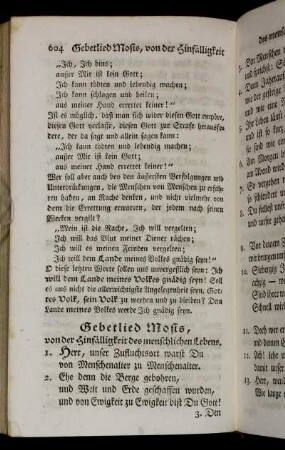 604 Gebetlied Mosis, von der Hinfälligkeit
„Ich, Ich bins;
außer Mir ist kein Gott;
Ich kann tödten und lebendig machen;
Ich kann schlagen und heilen;
aus meiner Hand errettet keiner!“
Ist es möglich, daß man sich wider diesen Gott empöre,
diesen Gott verlasse, diesen Gott zur Strafe herausfo-
dere, der da sagt und allein sagen kann:
„Ich kann tödten und lebendig machen;
außer Mir ist kein Gott;
aus meiner Hand errettet keiner!“
Wer soll aber auch bey den äußersten Verfolgungen und
Unterdrückungen, die Menschen von Menschen zu erfah-
ren haben, an Rache denken, und nicht vielmehr von
dem die Errettung erwarten, der jedem nach seinen
Werken vergilt?
„Mein ist die Rache, Ich will vergelten;
Ich will das Blut meiner Diener rächen;
Ich will es meinen Feinden vergelten!
Ich will dem Lande meines Volkes gnädig seyn!“
O diese letzten Worte sollen uns unvergeßlich seyn: Ich
will dem Lande meines Volkes gnädig seyn! Soll
es uns nicht die allerwichtigste Angelegenheit seyn, Got-
tes Volk, sein Volk zu werden und zu bleiben? Dem
Lande meines Volkes werde Ich gnädig seyn.
Gebetlied Mosis,
von der Hinfälligkeit des menschlichen Lebens.
1. Herr, unser Zufluchtsort warst Du
von Menschenalter zu Menschenalter.
2. Ehe denn die Berge gebohren,
und Welt und Erde geschaffen wurden,
und von Ewigkeit zu Ewigkeit bist Du Gott!
3. Den